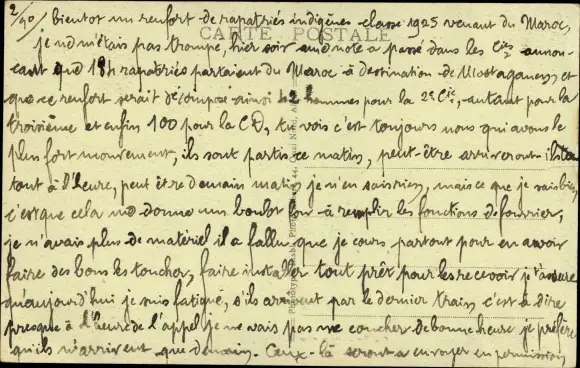 2/90/ bientot un renfort de rapatriés indigènes classe 1925 venant du Maroc,
CARTE POSTALE
je ne m'étais pas trompé, hier soir une note a passé dans les Cies annon-
cant que 184 rapatriés partaient du Maroc à destination de Mostaganem et
que ce renfort serait décomposé ainsi 42 hommes pour la 2e Cie, autant pour la
troisième et enfin 100 pour la CD, tu vois c'est toujours nous qui avons le
plus fort mouvement, ils sont partis ce matin, peut-être arriveront-ils
tout à l'heure, peut être demain matin je n'en sais rien, mais ce que je sais bien
c'est que cela me donne un boulot fou à remplir les fonctions de fourrier,
je n'avais plus de matériel il a fallu que je cours partout pour en avoir
faire des bons les toucher, faire installer tout prêt pour les recevoir je t'assure
qu'aujourd'hui je suis fatigué, s'ils arrivent par le dernier train c'est à dire
presque à l'heure de l'appel je ne vais pas me coucher de bonne heure je préfère
qu'ils n'arrivent que demain. Ceux-là seront à envoyer en permission